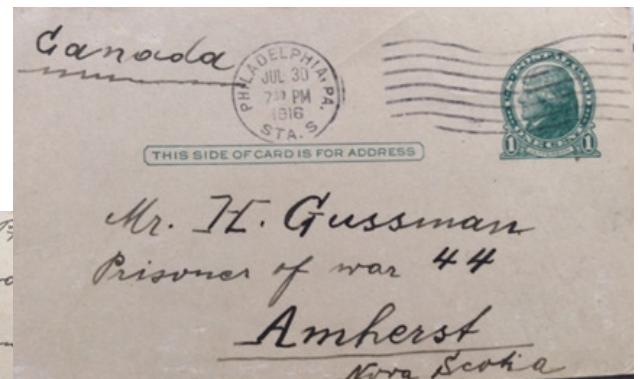 Canada
PHILADELPHIA, PA.
JUL 30
7 30 PM
1916
STA. S
U.S. POSTAL CARD
1 ONE CENT 1
THIS SIDE OF CARD IS FOR ADDRESS
Mr. H. Gussman
Prisoner of war 44
Amherst
Nova Scotia